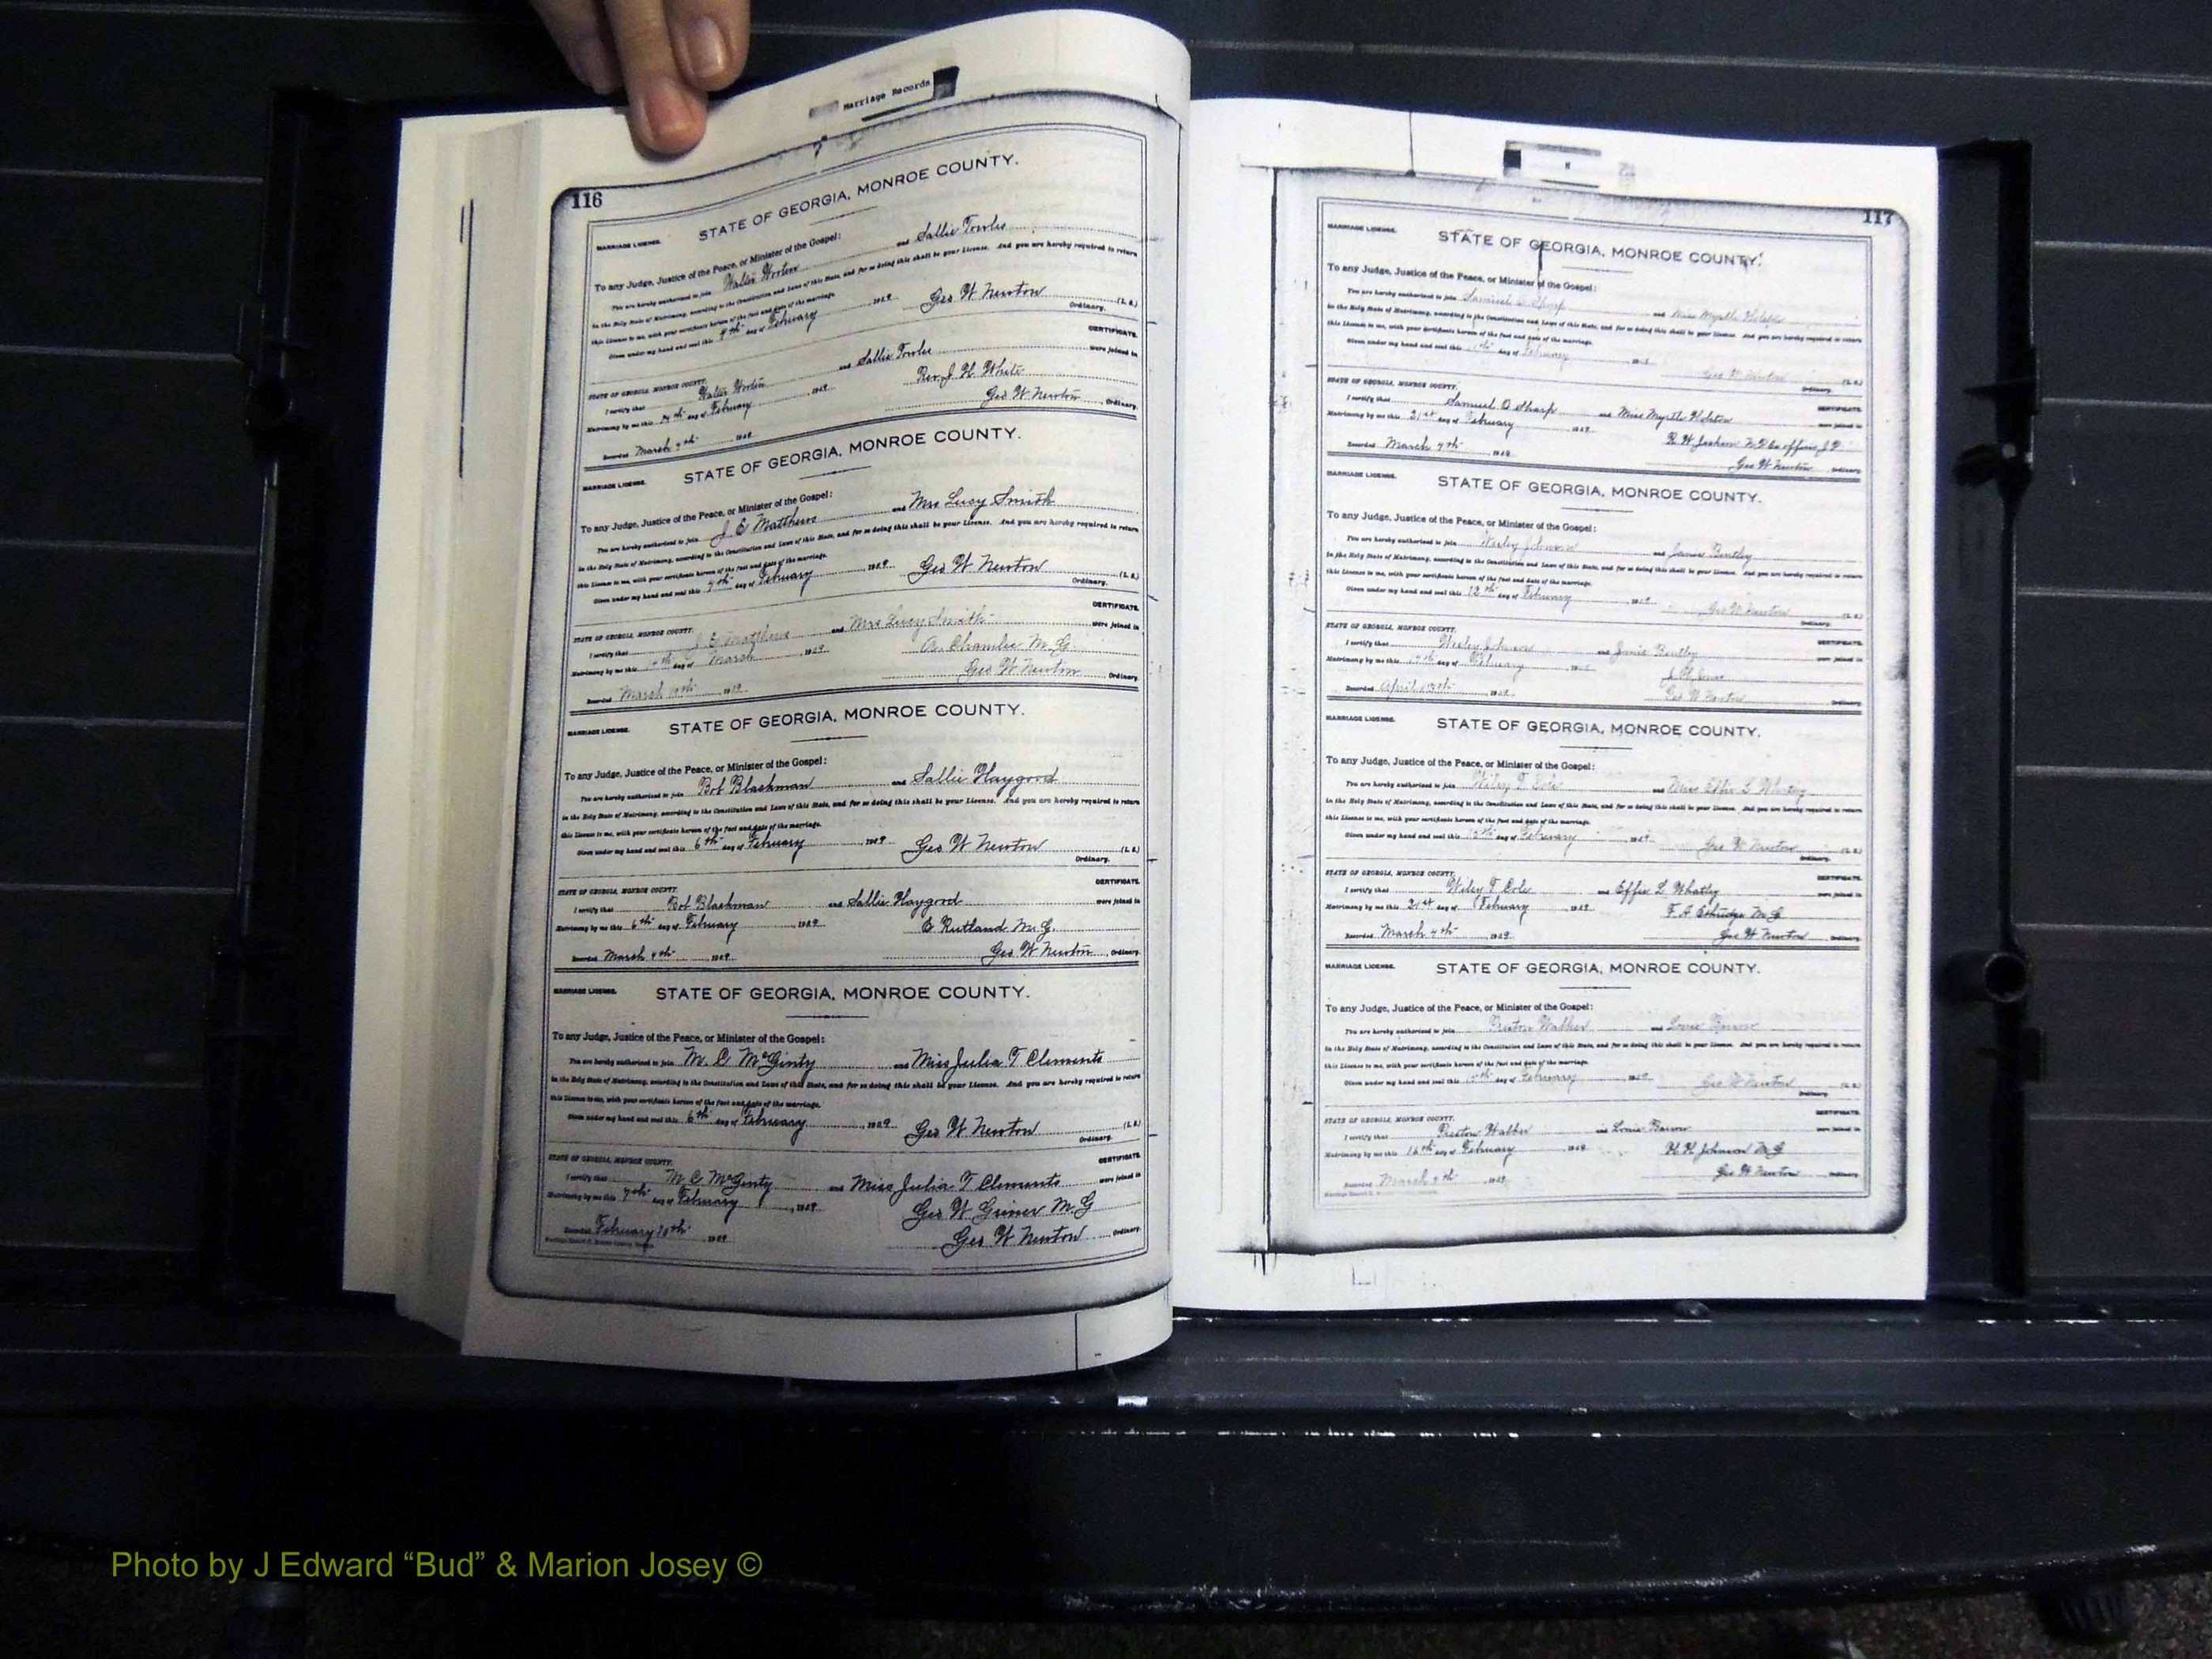 Marriage Records
116
STATE OF GEORGIA, MONROE COUNTY.
MARRIAGE LICENSE.
To any Judge, Justice of the Peace, or Minister of the Gospel:
You are hereby authorized to join Walter and Sallie Fowler
in the Holy State of Matrimony, according to the Constitution and Laws of this State, and for so doing this shall be your License. And you are hereby required to return
this License to me, with your certificate hereon of the fact and date of the marriage.
Given under my hand and seal this day of February, 1909 Geo W Newton (L. S.)
Ordinary.
CERTIFICATE.
STATE OF GEORGIA, MONROE COUNTY.
I certify that Walter and Sallie Fowler were joined in
Matrimony by me this 14th day of February, 1909 Rev J H White
Recorded March 4th 1909 Geo W Newton, Ordinary.
STATE OF GEORGIA, MONROE COUNTY.
MARRIAGE LICENSE.
To any Judge, Justice of the Peace, or Minister of the Gospel:
You are hereby authorized to join J E Matthews and Mrs Lucy Smith
in the Holy State of Matrimony, according to the Constitution and Laws of this State, and for so doing this shall be your License. And you are hereby required to return
this License to me, with your certificate hereon of the fact and date of the marriage.
Given under my hand and seal this day of February, 1909 Geo W Newton (L. S.)
Ordinary.
CERTIFICATE.
STATE OF GEORGIA, MONROE COUNTY.
I certify that J E Matthews and Mrs Lucy Smith were joined in
Matrimony by me this day of March, 1909 A. Chamlee M. G.
Recorded March 1909 Geo W Newton, Ordinary.
MARRIAGE LICENSE. STATE OF GEORGIA, MONROE COUNTY.
To any Judge, Justice of the Peace, or Minister of the Gospel:
You are hereby authorized to join Bob Blashman and Sallie Haygood
in the Holy State of Matrimony, according to the Constitution and Laws of this State, and for so doing this shall be your License. And you are hereby required to return
this License to me, with your certificate hereon of the fact and date of the marriage.
Given under my hand and seal this 6th day of February, 1909 Geo W Newton (L. S.)
Ordinary.
CERTIFICATE.
STATE OF GEORGIA, MONROE COUNTY.
I certify that Bob Blashman and Sallie Haygood were joined in
Matrimony by me this 6th day of February, 1909 E Rutland M. G.
Recorded March 4th 1909 Geo W Newton, Ordinary.
MARRIAGE LICENSE. STATE OF GEORGIA, MONROE COUNTY.
To any Judge, Justice of the Peace, or Minister of the Gospel:
You are hereby authorized to join M. C McGinty and Miss Julia T Clements
in the Holy State of Matrimony, according to the Constitution and Laws of this State, and for so doing this shall be your License. And you are hereby required to return
this License to me, with your certificate hereon of the fact and date of the marriage.
Given under my hand and seal this 6th day of February, 1909 Geo W Newton (L. S.)
Ordinary.
CERTIFICATE.
STATE OF GEORGIA, MONROE COUNTY.
I certify that M C McGinty and Miss Julia T Clements were joined in
Matrimony by me this 7th day of February, 1909 Geo W Griner M. G
Recorded February 1909 Geo W Newton, Ordinary.
117
MARRIAGE LICENSE. STATE OF GEORGIA, MONROE COUNTY.
To any Judge, Justice of the Peace, or Minister of the Gospel:
You are hereby authorized to join Samuel O Sharp and Miss Myrtle
in the Holy State of Matrimony, according to the Constitution and Laws of this State, and for so doing this shall be your License. And you are hereby required to return
this License to me, with your certificate hereon of the fact and date of the marriage.
Given under my hand and seal this day of February Geo W Newton (L. S.)
Ordinary.
STATE OF GEORGIA, MONROE COUNTY. CERTIFICATE.
I certify that Samuel O Sharp and Miss Myrtle were joined in
Matrimony by me this 21st day of February, 1909
Recorded March 4th 1909 Geo W Newton, Ordinary.
MARRIAGE LICENSE. STATE OF GEORGIA, MONROE COUNTY.
To any Judge, Justice of the Peace, or Minister of the Gospel:
You are hereby authorized to join Wesley Johnson and Janie Bentley
in the Holy State of Matrimony, according to the Constitution and Laws of this State, and for so doing this shall be your License. And you are hereby required to return
this License to me, with your certificate hereon of the fact and date of the marriage.
Given under my hand and seal this 12th day of February, 1909 Geo W Newton (L. S.)
Ordinary.
STATE OF GEORGIA, MONROE COUNTY. CERTIFICATE.
I certify that Wesley Johnson and Janie Bentley were joined in
Matrimony by me this day of February
Recorded April Geo W Newton Ordinary.
MARRIAGE LICENSE. STATE OF GEORGIA, MONROE COUNTY.
To any Judge, Justice of the Peace, or Minister of the Gospel:
You are hereby authorized to join Wiley T Cole and Miss Effie L Whatley
in the Holy State of Matrimony, according to the Constitution and Laws of this State, and for so doing this shall be your License. And you are hereby required to return
this License to me, with your certificate hereon of the fact and date of the marriage.
Given under my hand and seal this day of February, 1909 Geo W Newton (L. S.)
Ordinary.
STATE OF GEORGIA, MONROE COUNTY. CERTIFICATE.
I certify that Wiley T Cole and Effie L Whatley were joined in
Matrimony by me this 21st day of February, 1909 F. A Ethridge M. G
Recorded March 4th, 1909 Geo W Newton Ordinary.
MARRIAGE LICENSE. STATE OF GEORGIA, MONROE COUNTY.
To any Judge, Justice of the Peace, or Minister of the Gospel:
You are hereby authorized to join Preston Walker and
in the Holy State of Matrimony, according to the Constitution and Laws of this State, and for so doing this shall be your License. And you are hereby required to return
this License to me, with your certificate hereon of the fact and date of the marriage.
Given under my hand and seal this day of February, 1909 Geo W Newton (L. S.)
Ordinary.
STATE OF GEORGIA, MONROE COUNTY. CERTIFICATE.
I certify that Preston Walker and were joined in
Matrimony by me this 16th day of February, 1909 H. H. Johnson M. G
Recorded March 1909 Geo W Newton Ordinary.
Photo by J Edward “Bud” & Marion Josey ©